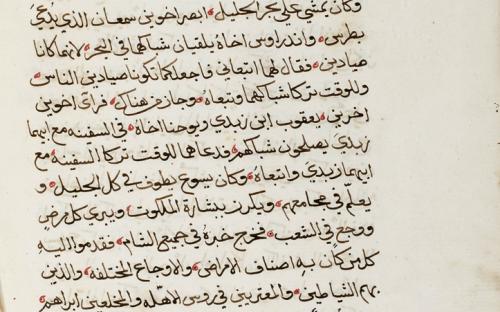 وكان يمشي علي بحر الجليل ابصر اخوين سمعان الذي يدعي
بطرس واندراوس اخاه يلقيان شباكهما في البحر لانهما كانا
صيادين فقال لهما اتبعاني فاجعلكما تكونا صيادين الناس
وللوقت تركا شباكهما وتبعاه وجاز من هناك فراي اخوين
اخرين يعقوب ابن زبدي ويوحنا اخاه في السفينه مع ابيهما
زبدي يصلحون شباكهم فدعاهما للوقت تركا السفينه مع
ابيهما زبدي واتبعاه وكان يسوع يطوف في كل الجليل و
يعلم في مجامعهم ويكرز ببشارة الملكوت ويبري كل مرض
ووجع في الشعب فخرج خبره في جميع الشام فقدموا اليه
كل من كان به اصناف الامراض والاوجاع المختلفه والذين
بهم الشياطين والمعتريين في روس الاهله والمخلعين ابراهم